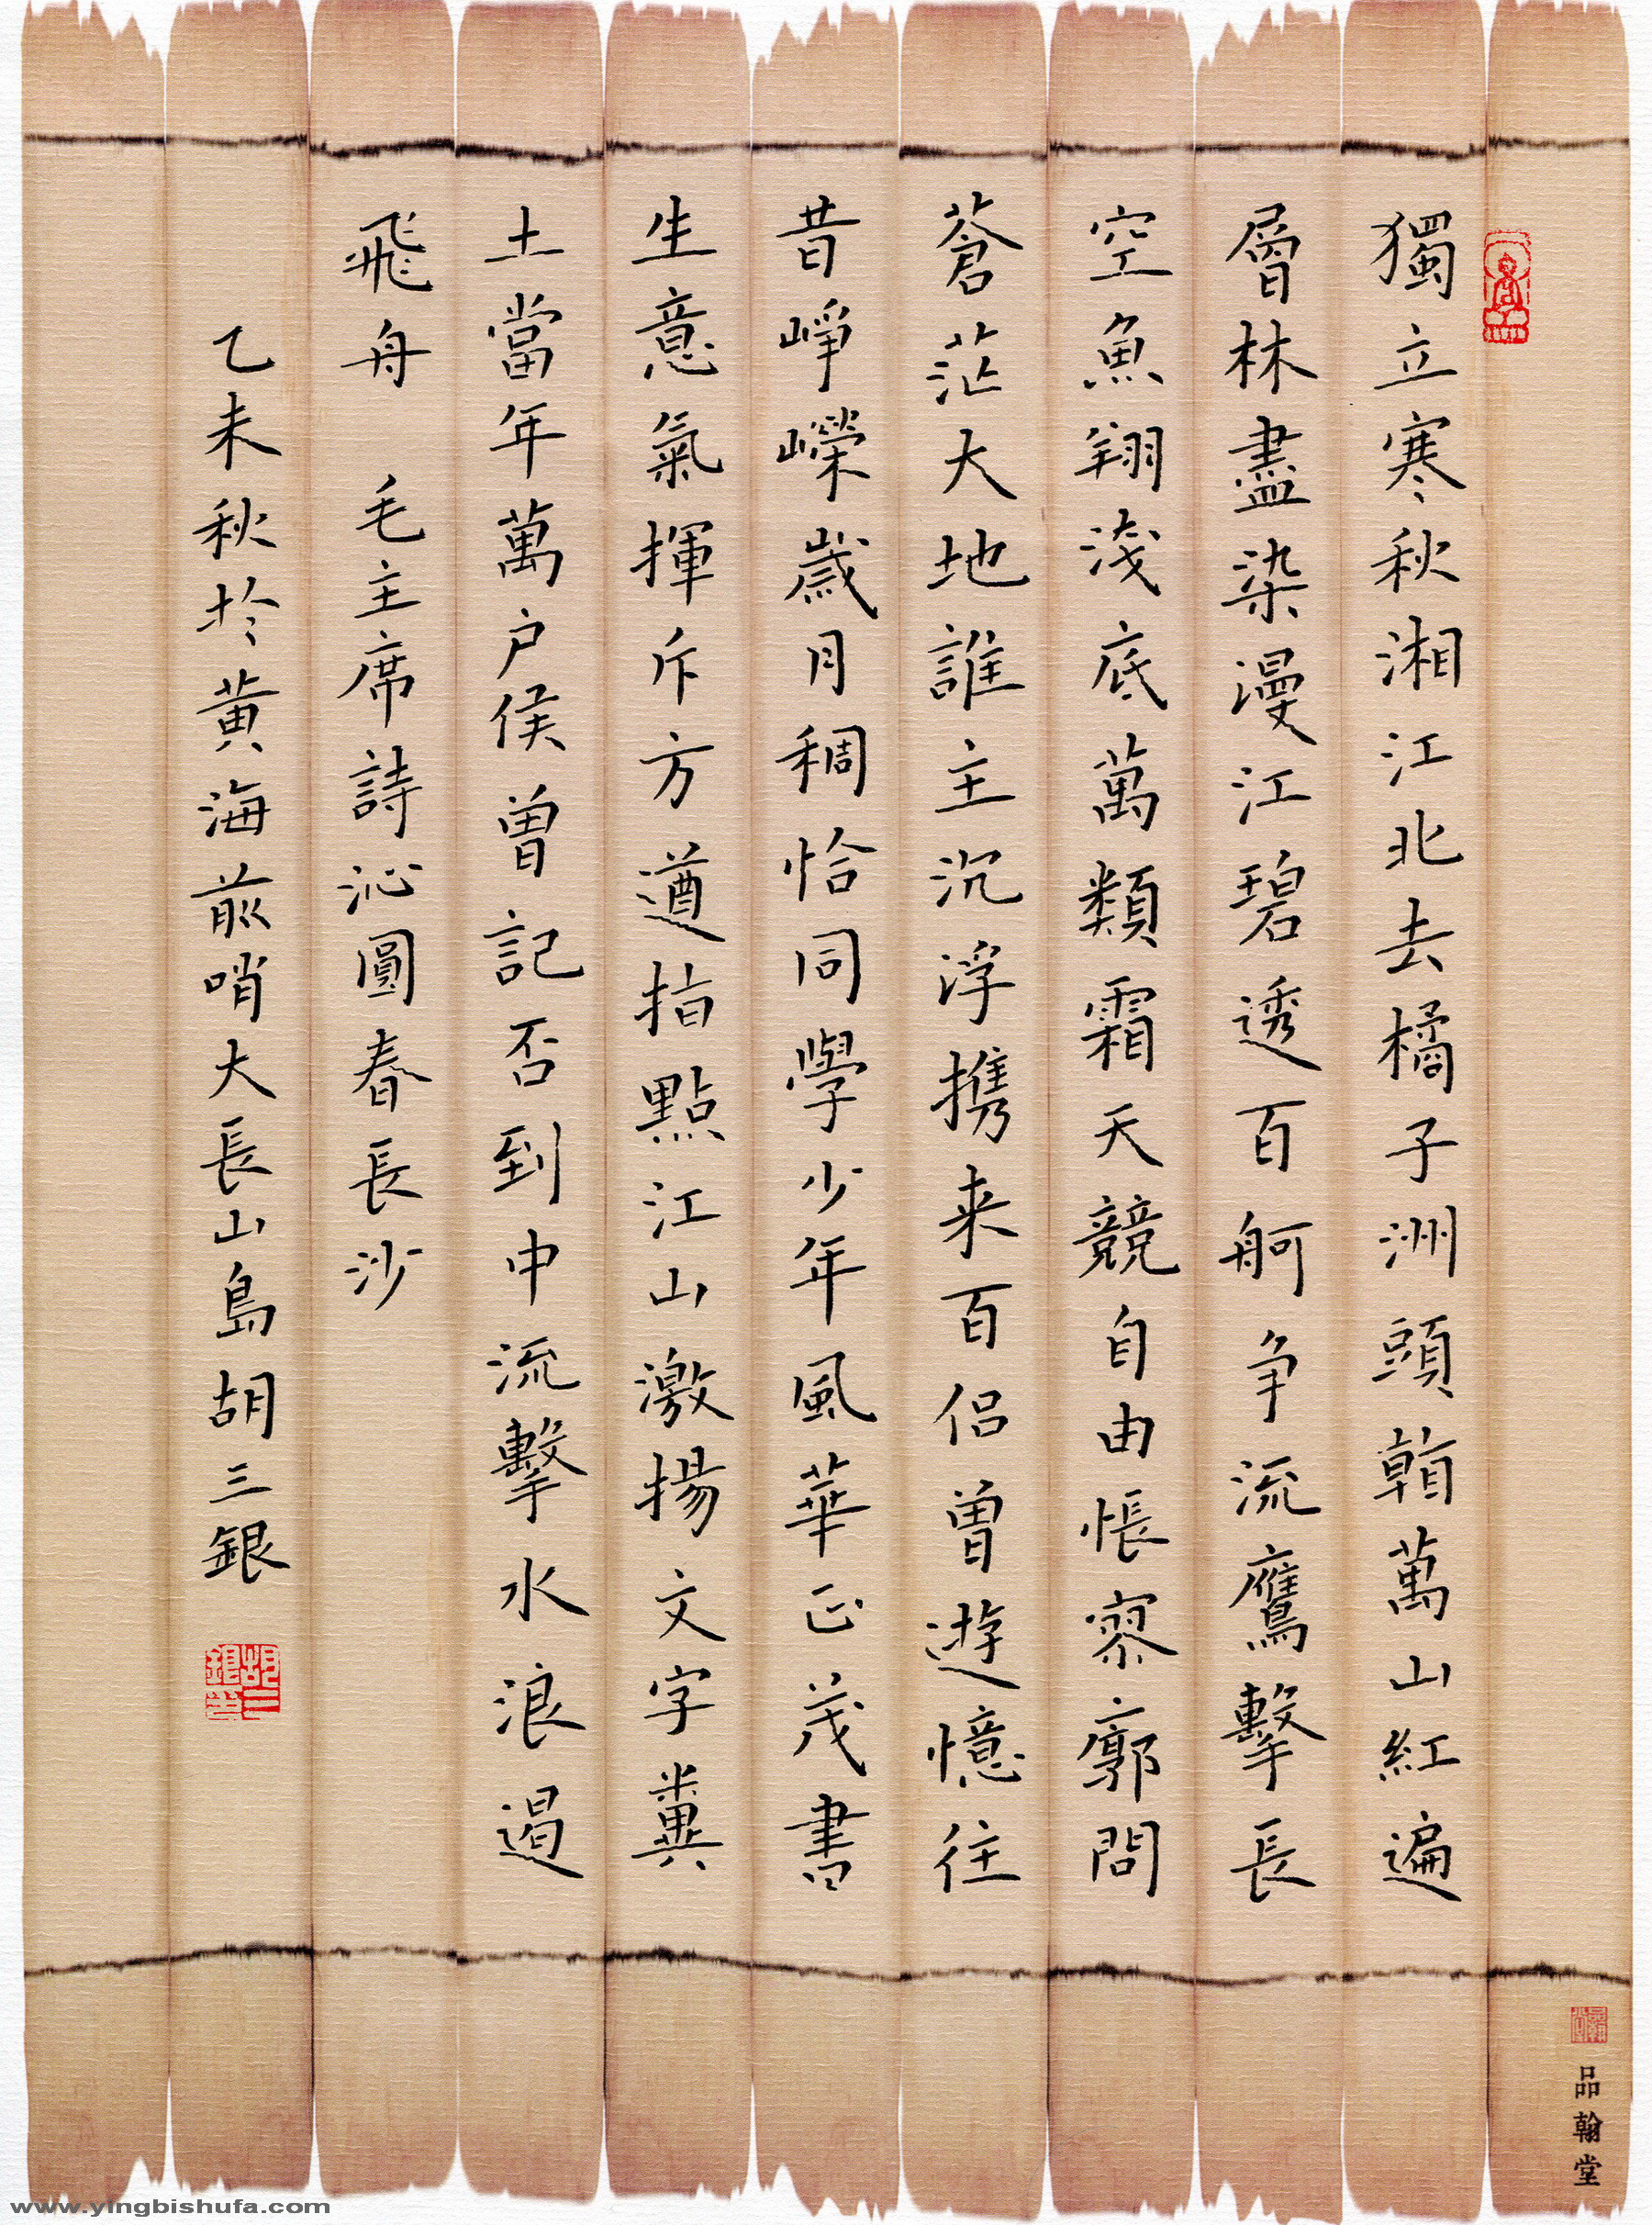 獨立寒秋湘江北去橘子洲頭看萬山紅遍
層林盡染漫江碧透百舸争流鷹擊長
空魚翔淺底萬類霜天競自由悵寥廓問
蒼茫大地誰主沉浮携来百侣曾遊憶往
昔崢嶸歲月稠恰同學少年風華正茂書
生意氣揮斥方遒指點江山激揚文字糞
土當年萬户侯曾記否到中流擊水浪遏
飛舟 毛主席詩沁圓春長沙
乙未秋於黄海前哨大長山島胡三銀
胡三銀印
品翰堂
www.yingbishufa.com